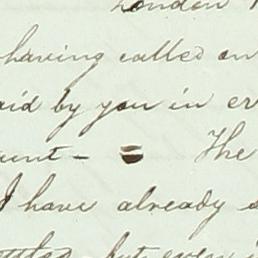 London
having called on
aid by you in er
unt - The
I have already s
but even